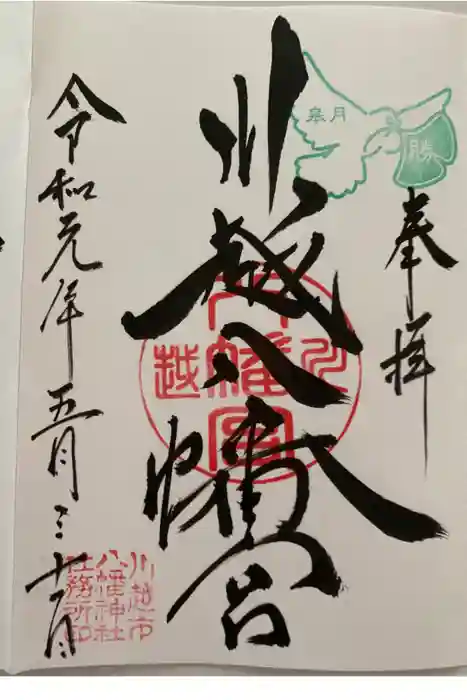 奉拝
皐月
勝
川越八幡宮
川越
八幡宮
令和元年五月三十一日
川越市
八幡神社
社務所印